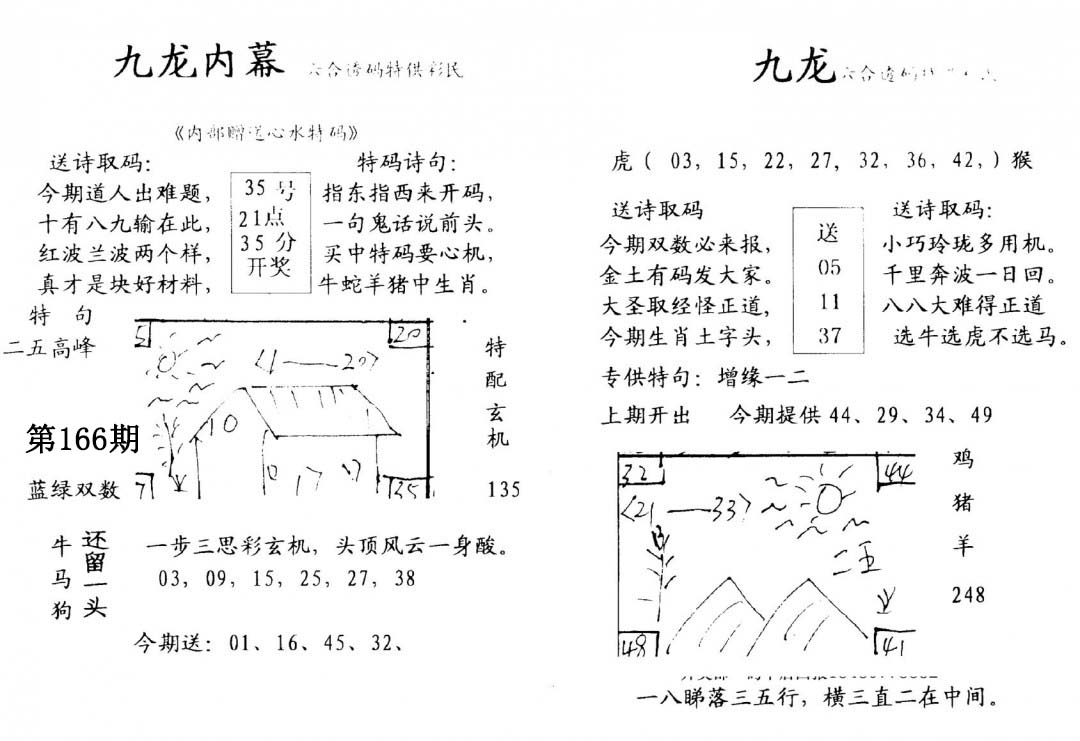 九龙内幕 六合透码特供彩民
《内部赠送心水特码》
送诗取码：
今期道人出难题，
十有八九输在此，
红波兰波两个样，
真才是块好材料，
35 号
21点
35 分
开奖
特码诗句：
指东指西来开码，
一句鬼话说前头。
买中特码要心机，
牛蛇羊猪中生肖。
特 句
二五高峰
第166期
蓝绿双数
5
20
<1——20>
10
7
35
特
配
玄
机
135
牛
马
狗
还留一头
一步三思彩玄机，头顶风云一身酸。
03，09，15，25，27，38
今期送：01、16、45、32、
九龙 六合透码
虎（ 03，15，22，27，32，36，42，）猴
送诗取码
今期双数必来报，
金土有码发大家。
大圣取经怪正道，
今期生肖土字头，
送
05
11
37
送诗取码：
小巧玲珑多用机。
千里奔波一日回。
八八大难得正道
选牛选虎不选马。
专供特句：增缘一二
上期开出 今期提供 44、29、34、49
32
44
<21——33>
二五
48
41
鸡
猪
羊
248
一八睇落三五行，横三直二在中间。